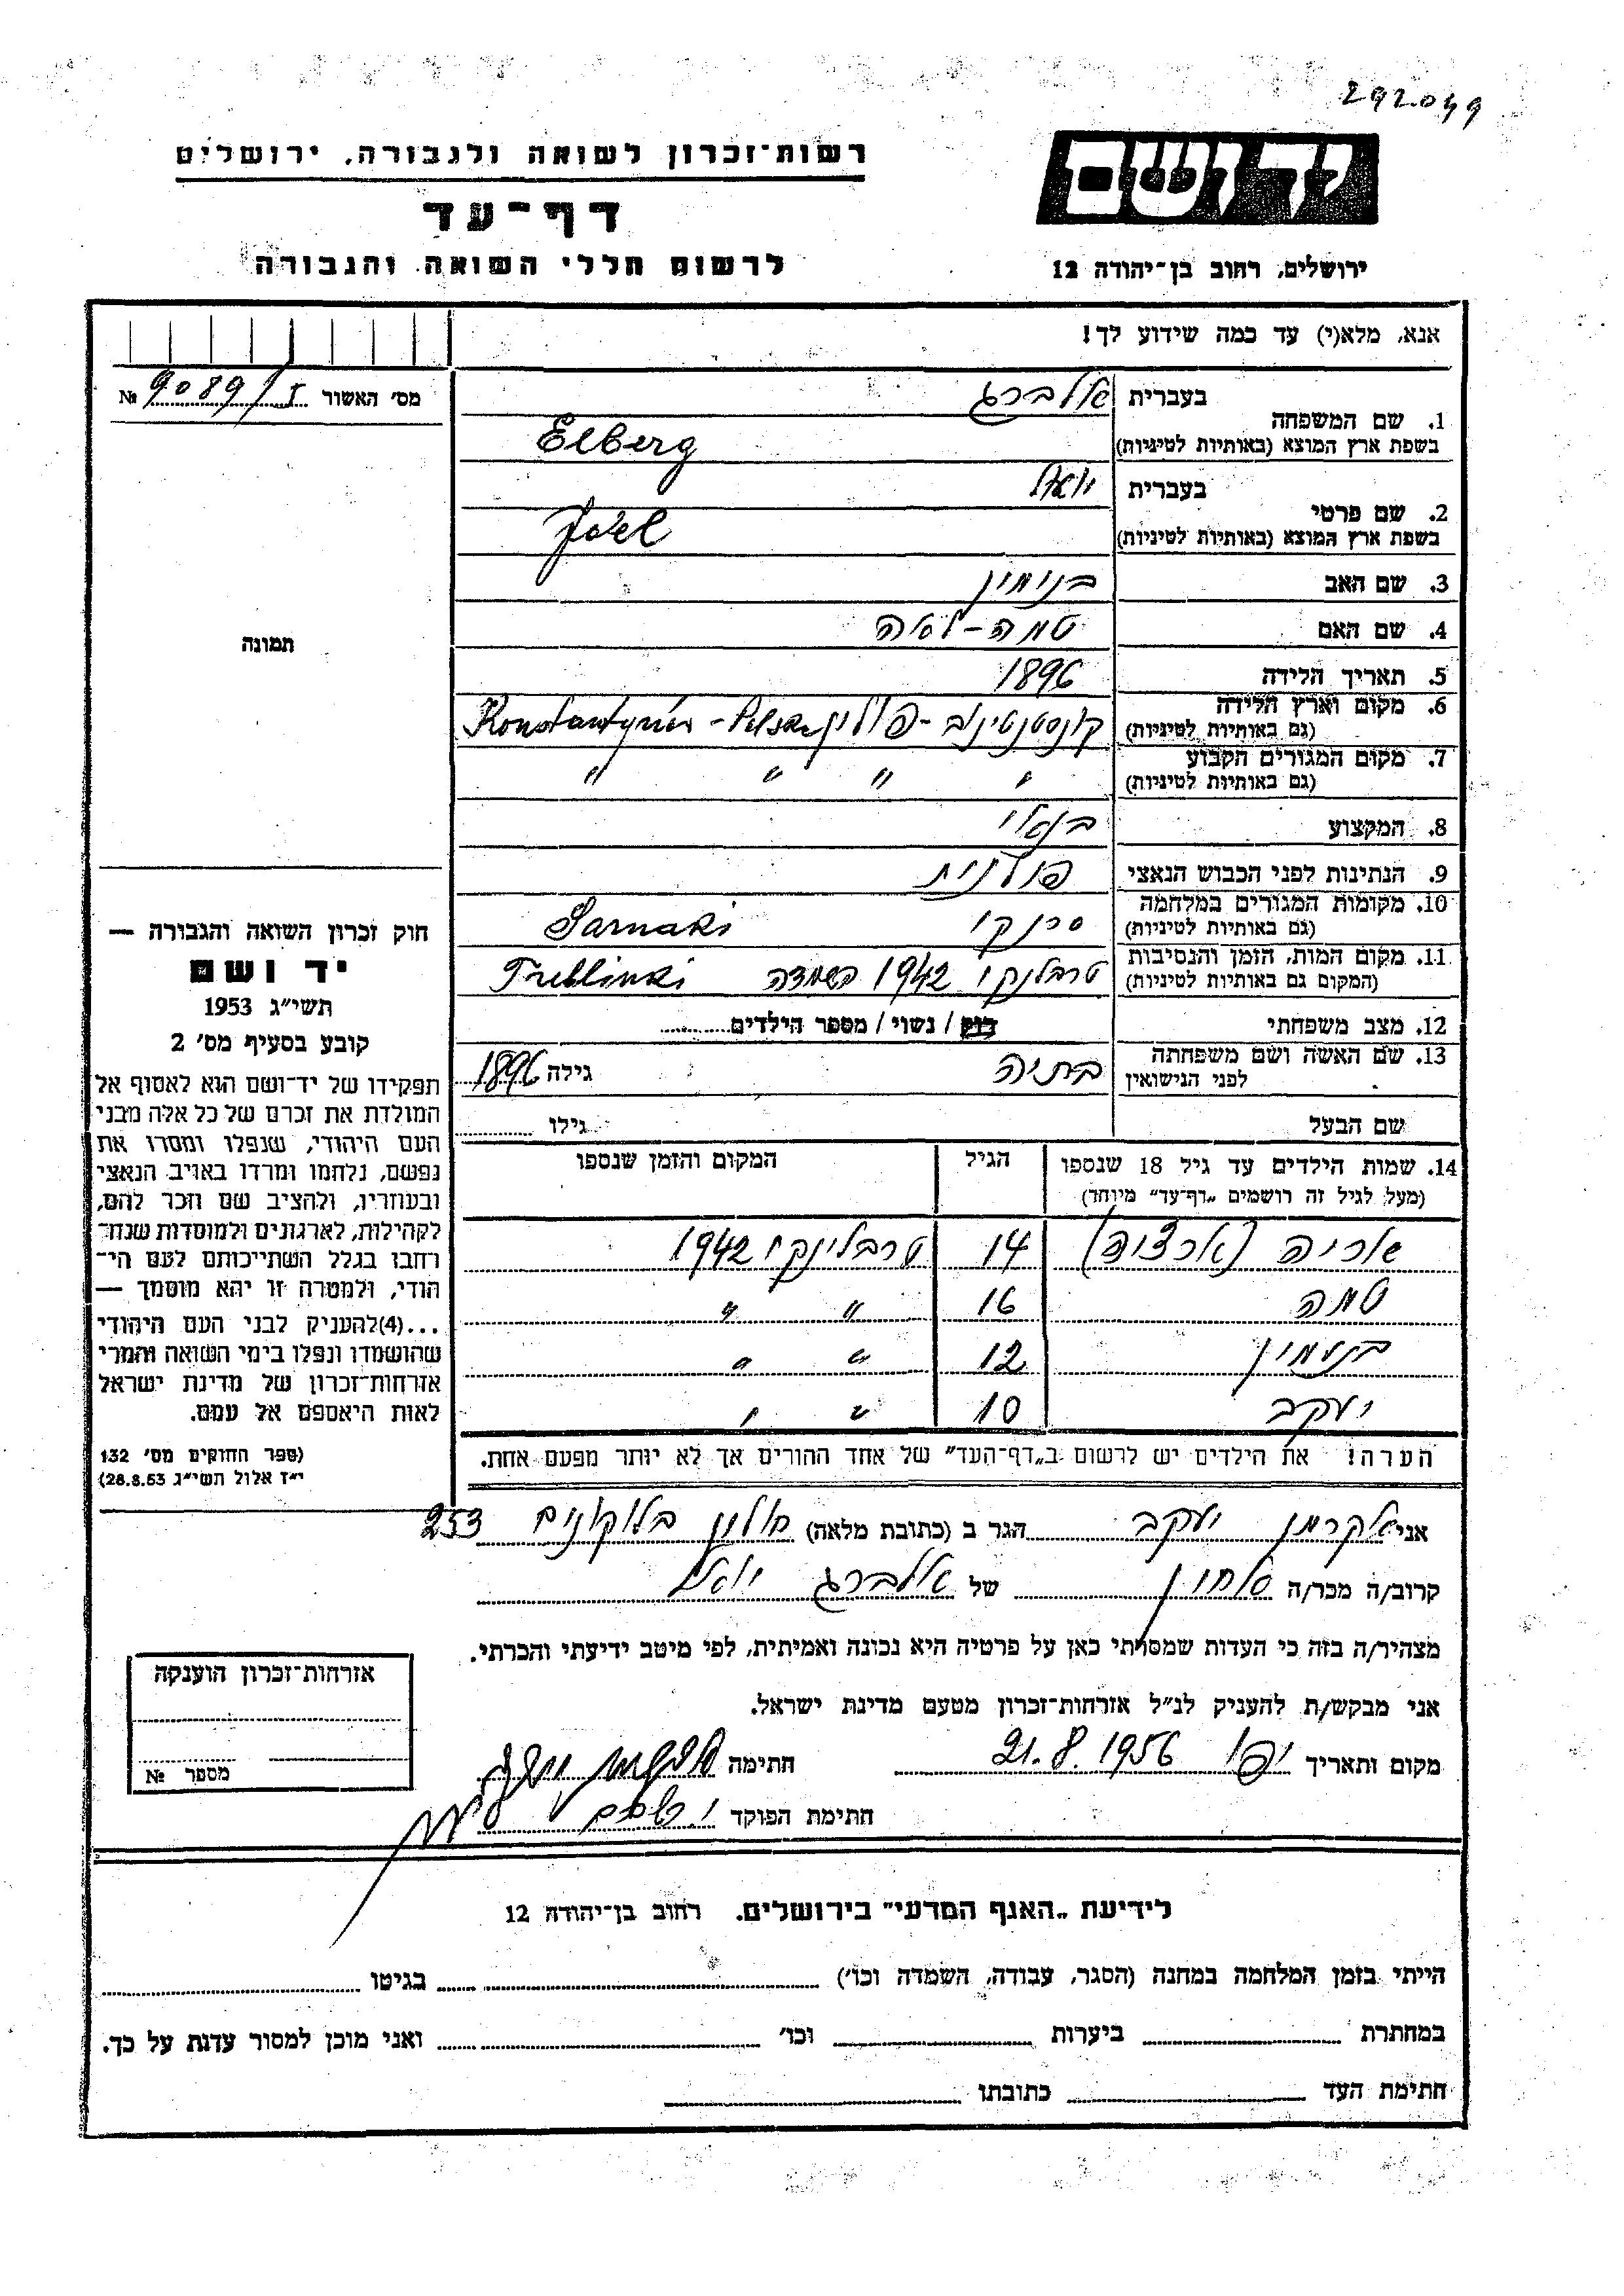 292.049
רשות־זכרון לשואה ולגבורה, ירושלים
יד ושם
דף־עד
לרשום חללי השואה והגבורה
ירושלים, רחוב בן־יהודה 12
אנא, מלא(י) עד כמה שידוע לך!
מס׳ האשור 9089/I №
1. שם המשפחה
בעברית אלברג
בשפת ארץ המוצא (באותיות לטיניות) Elberg
2. שם פרטי
בעברית יואל
בשפת ארץ המוצא (באותיות לטיניות) Joel
3. שם האב בנימין
4. שם האם טמה-לאה
5. תאריך הלידה 1896
6. מקום וארץ הלידה
(גם באותיות לטיניות) קונסטנטינוב - פולין Konstantynów - Polska
7. מקום המגורים הקבוע
(גם באותיות לטיניות) " " " "
8. המקצוע בנאי
9. הנתינות לפני הכבוש הנאצי פולנית
10. מקומות המגורים במלחמה
(גם באותיות לטיניות) סרנקי Sarnaki
11. מקום המות, הזמן והנסיבות
(המקום גם באותיות לטיניות) טרבלנקי 1942 השמדה Treblinki
12. מצב משפחתי רווק / נשוי / מספר הילדים
13. שם האשה ושם משפחתה
לפני הנישואין בתיה גילה 1896
שם הבעל גילו
14. שמות הילדים עד גיל 18 שנספו
(מעל לגיל זה רושמים „דף־עד״ מיוחד)
הגיל
המקום והזמן שנספו
אריה 14 טרבלינקי 1942
טמה 16 " "
בנימין 12 " "
יעקב 10 " "
הערה! את הילדים יש לרשום ב„דף־העד״ של אחד ההורים אך לא יותר מפעם אחת.
תמונה
חוק זכרון השואה והגבורה —
יד ושם
תשי״ג 1953
קובע בסעיף מס׳ 2
תפקידו של יד־ושם הוא לאסוף אל
המולדת את זכרם של כל אלה מבני
העם היהודי, שנפלו ומסרו את
נפשם, נלחמו ומרדו באויב הנאצי
ובעוזריו, ולהציב שם וזכר להם,
לקהילות, לארגונים ולמוסדות שנח־
רחבו בגלל השתייכותם לעם הי־
הודי, ולמטרה זו יהא מוסמך —
...(4)להעניק לבני העם היהודי
שהושמדו ונפלו בימי השואה והמרי
אזרחות־זכרון של מדינת ישראל
לאות היאספם אל עמם.
(ספר החוקים מס׳ 132
י״ז אלול תשי״ג 28.8.53)
אני אקרמן יעקב הגר ב (כתובת מלאה) חולון בלוקונים 253
קרוב/ה מכר/ה של אלברג יואל
מצהיר/ה בזה כי העדות שמסרתי כאן על פרטיה היא נכונה ואמיתית, לפי מיטב ידיעתי והכרתי.
אני מבקש/ת להעניק לנ״ל אזרחות־זכרון מטעם מדינת ישראל.
מקום ותאריך יפו 21.8.1956 חתימה
חתימת הפוקד
אזרחות־זכרון הוענקה
מספר №
לידיעת „האגף המדעי״ בירושלים. רחוב בן־יהודה 12
הייתי בזמן המלחמה במחנה (הסגר, עבודה, השמדה וכו׳) בגיטו
במחתרת ביערות וכו׳ ואני מוכן למסור עדות על כך.
חתימת העד כתובתו